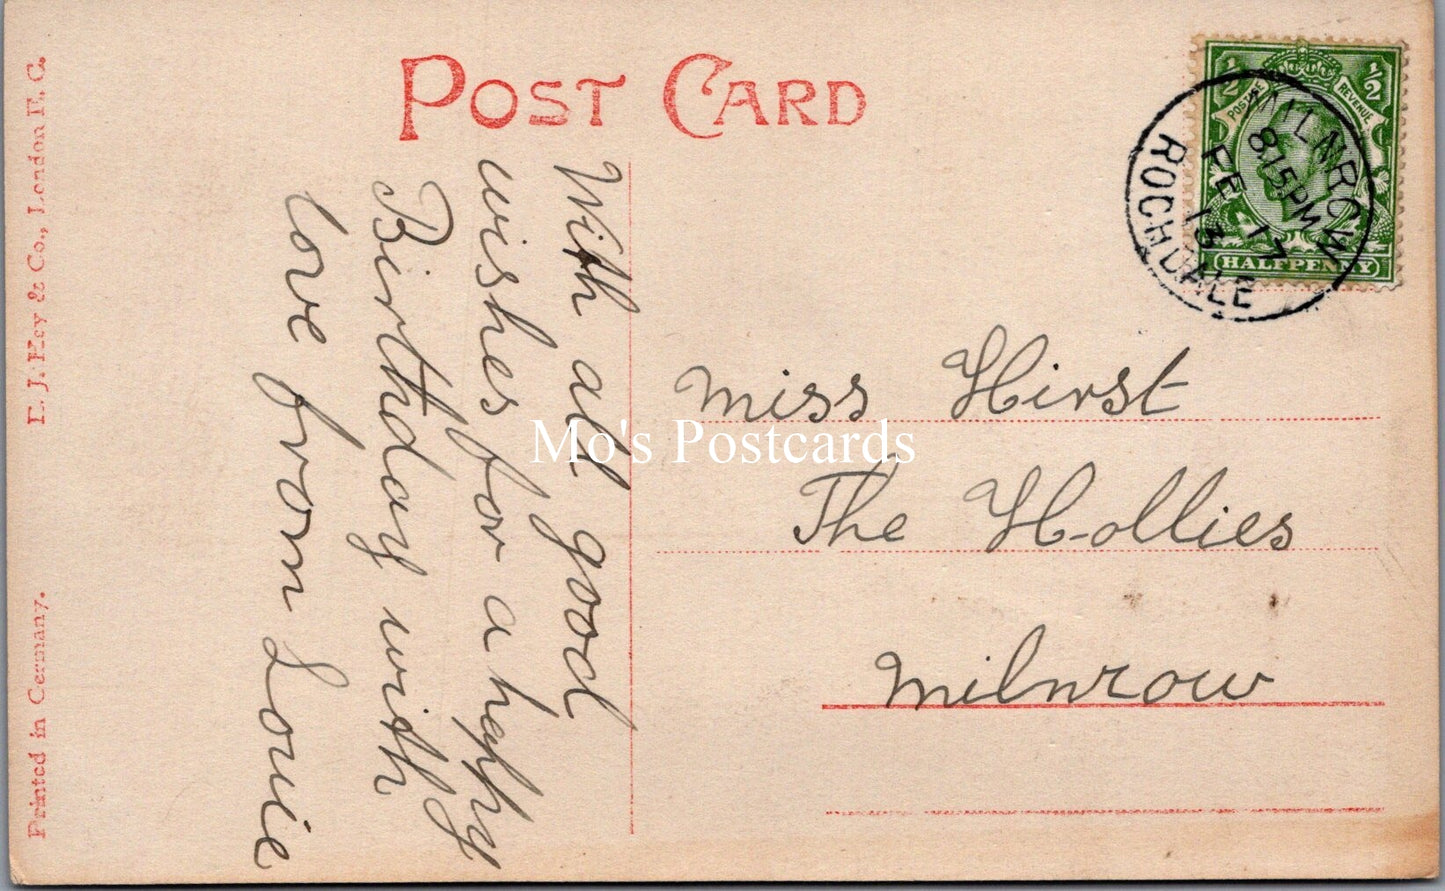 POST CARD
With all good
wishes for a happy
Birthday with
love from Louie
Miss Hirst
The Hollies
Milnrow
½ ½
POSTAGE REVENUE
HALFPENNY
MILNROW
8.15 PM
FE 17
13
ROCHDALE
Mo's Postcards
E. J. Hey & Co., London E. C.
Printed in Germany.